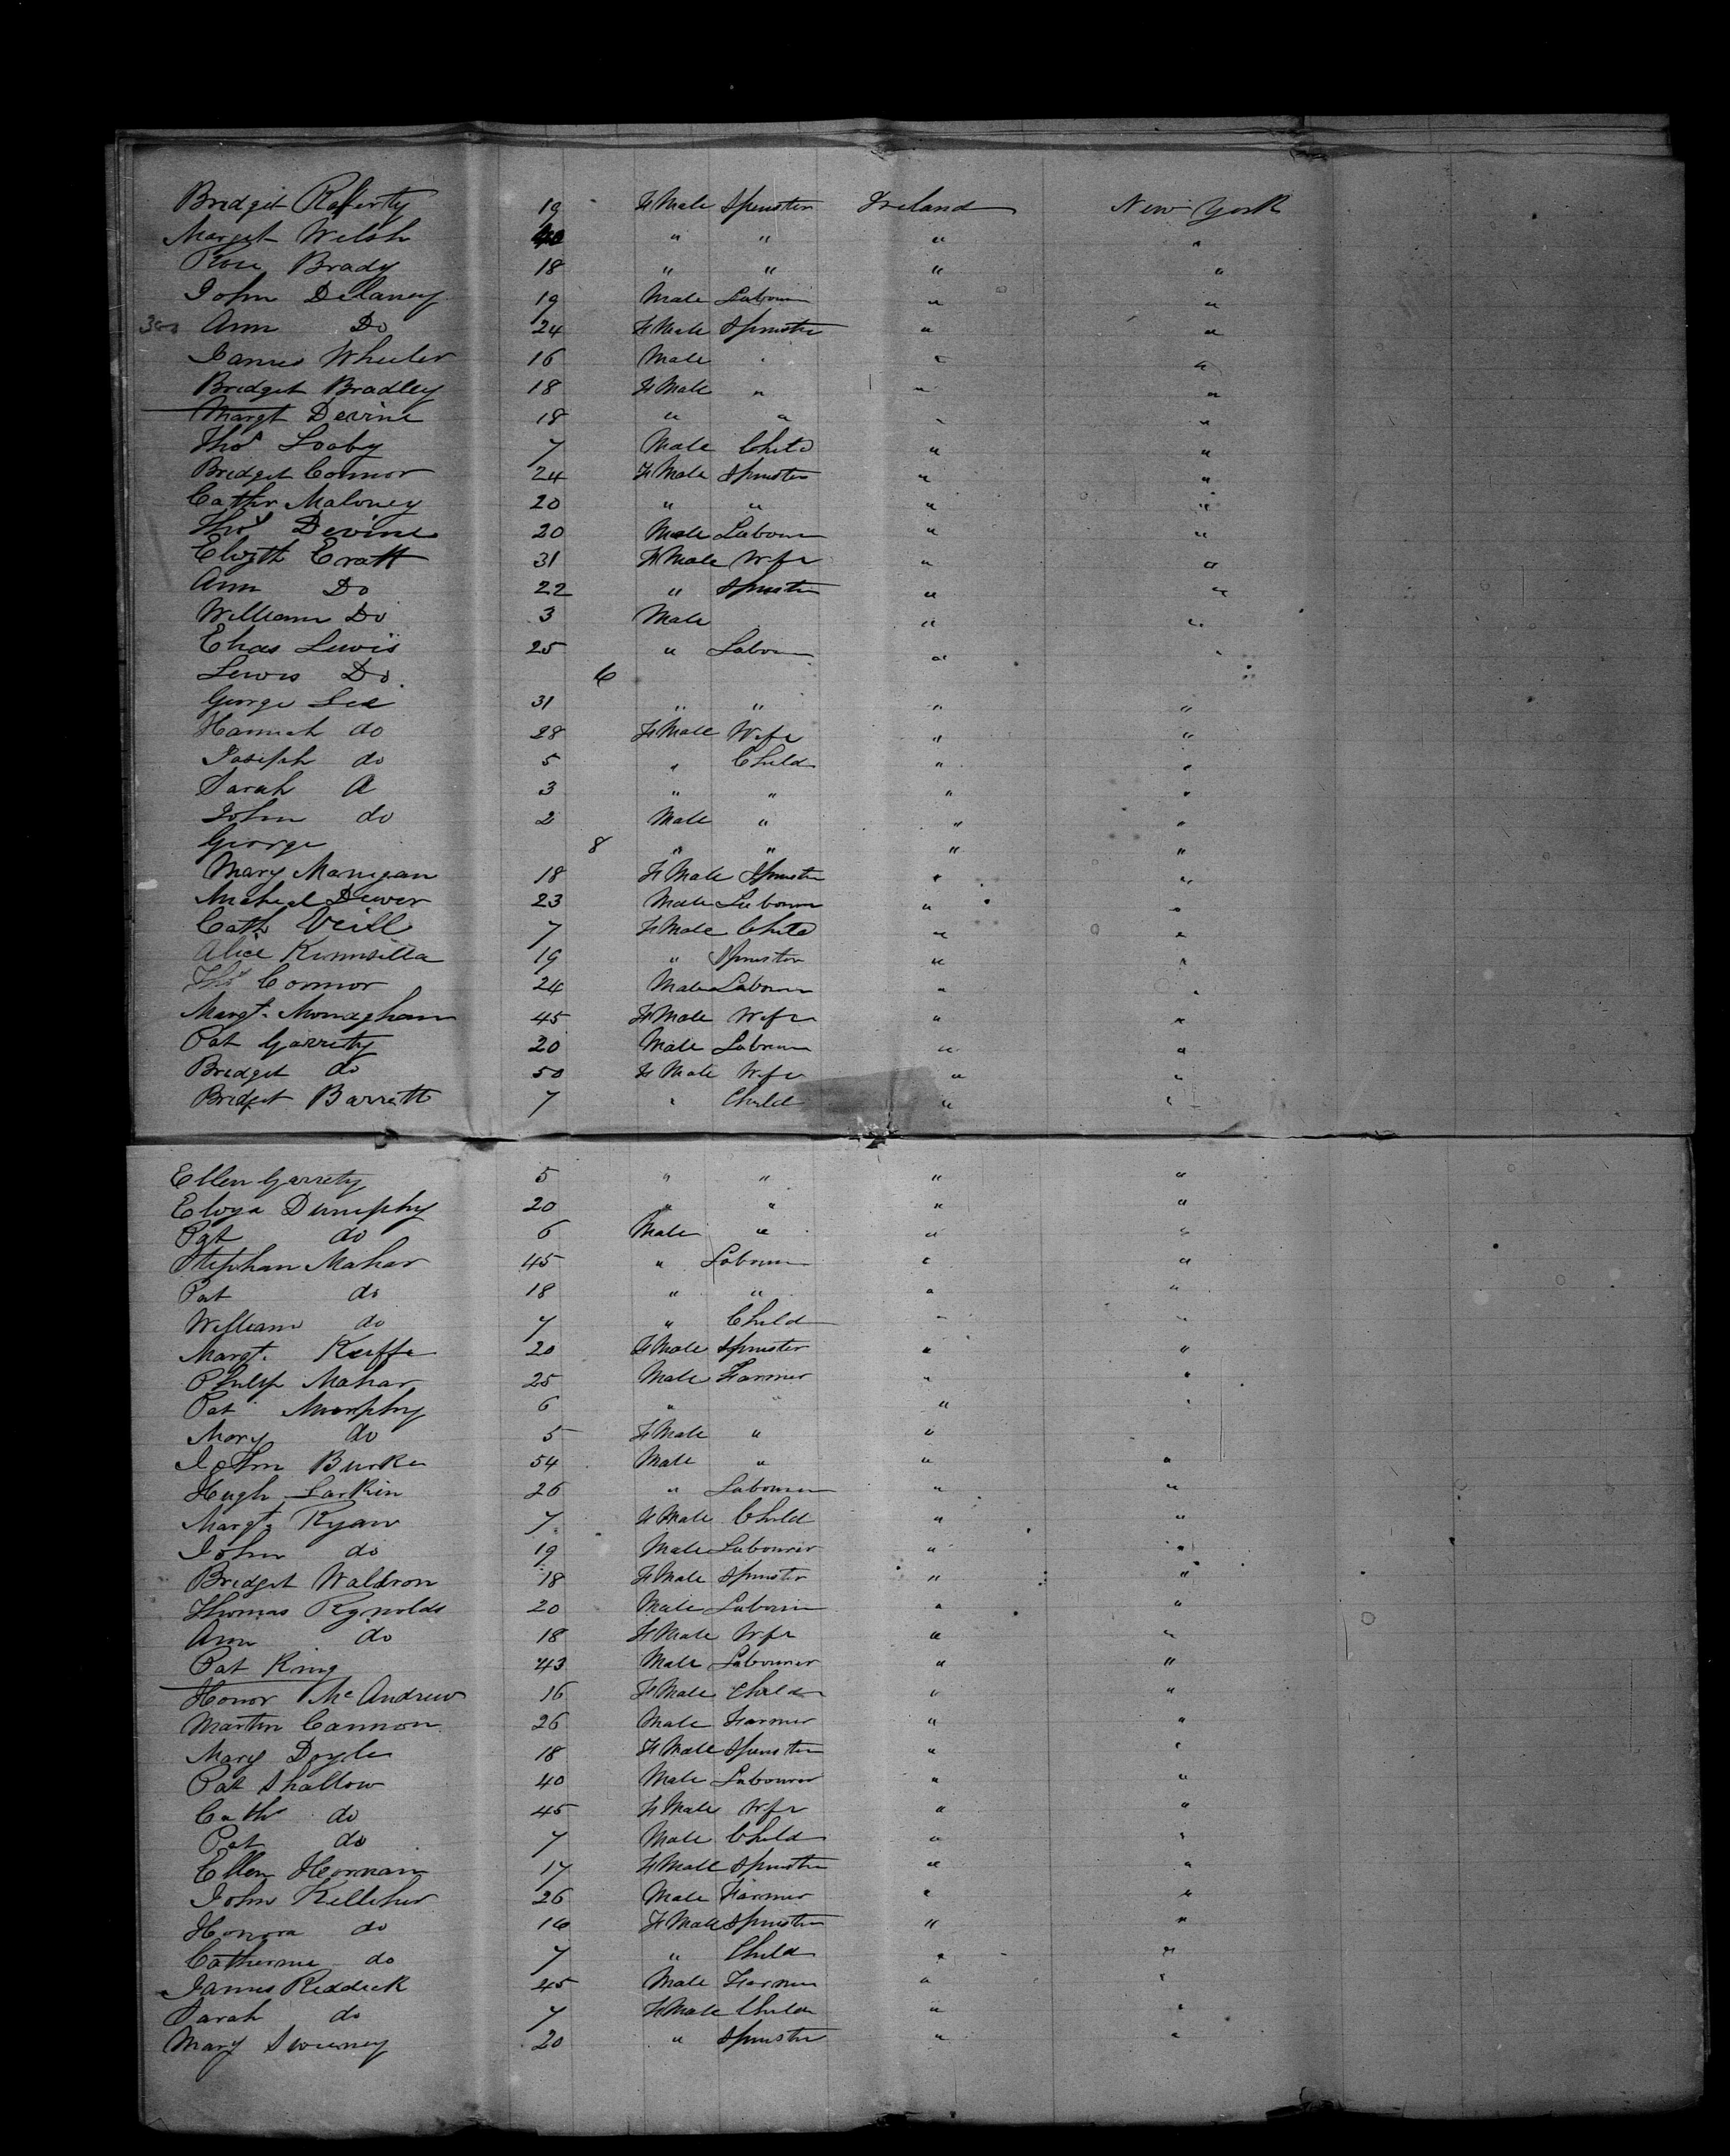 Bridget Rafferty 19 FMale Spinster Ireland New York
Margret Welsh 40 " " " "
Rose Brady 18 " " " "
John Delaney 19 Male Labour " "
300 Ann Do 24 FMale Spinster " "
James Wheeler 16 Male " " "
Bridget Bradley 18 FMale " " "
Margt Devine 18 " " " "
Thos Looby 7 Male Child " "
Bridget Connor 24 FMale Spinster " "
Cathr Maloney 20 " " " "
Thos Devine 20 Male Labour " "
Elizth Cratt 31 FMale Wife " "
Ann Do 22 " Spinster " "
William Do 3 Male " "
Elias Lewis 25 " Labour " "
Lewis Do 6
George Lee 31 " " " "
Hannah do 28 FMale Wife " "
Joseph do 5 " Child " "
Sarah A 3 " " " "
John do 2 Male " " "
George 8 " " " "
Mary Manigan 18 FMale Spinster " "
Micheal Dwer 23 Male Labourer " "
Cath Neill 7 FMale Child " "
Alice Kinnsilla 19 " Spinster " "
Thos Connor 24 Male Labourer " "
Margt. Monaghan 45 FMale Wife " "
Pat Garrety 20 Male Labourer " "
Bridget do 50 FMale Wife " "
Bridget Barrett 7 " Child " "
Ellen Garrety 5 " " " "
Eliza Dunphy 20 " " " "
Pat do 6 Male " " "
Stephan Mahar 45 " Labourer " "
Pat do 18 " " " "
William do 7 " Child " "
Margt. Keeffe 20 FMale Spinster " "
Philip Mahar 25 Male Farmer " "
Pat Murphy 6 " " " "
Mary do 5 FMale " "
John Burke 54 Male " " "
Hugh Larkin 26 " Labourer " "
Margt. Ryan 7 FMale Child " "
John do 19 Male Labourer " "
Bridget Waldron 18 FMale Spinster " "
Thomas Rynolds 20 Male Labourer " "
Ann do 18 FMale Wife " "
Pat King 43 Male Labourer " "
Honor McAndrew 16 FMale Child " "
Martin Cannon 26 Male Farmer " "
Mary Doyle 18 FMale Spinster " "
Pat Shallow 40 Male Labourer " "
Cathr do 45 FMale Wife " "
Pat do 7 Male Child " "
Ellen Hernan 17 FMale Spinster " "
John Kelleher 26 Male Farmer " "
Honora do 16 FMale Spinster " "
Catherine do 7 " Child " "
James Reddick 45 Male Farmer " "
Sarah do 7 FMale Child " "
Mary Sweeney 20 " Spinster " "